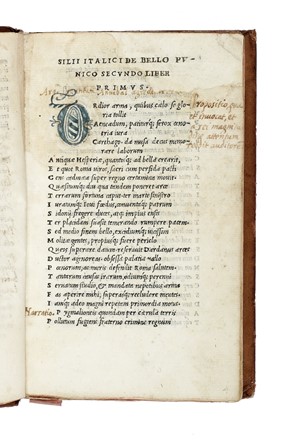 SILII ITALICI DE BELLO PV-
NICO SECVNDO LIBER
PRIMVS.
ORdior arma, quibus cælo se glo
ria tollit
Aeneadum, patiturq; ferox oeno
tria iura
Carthago. da musa decus memo
rare laborum
A ntiquæ Hesperiæ, quantosq; ad bella crearit,
E t quot Roma uiros, sacri cum perfida pacti
Gens Cadmea super regno certamina mouit.
Q uæsitumq; diu qua tandem poneret arce
T errarum fortuna caput. ter marte sinistro
I uratumq; Ioui foedus, conuentaq; patrum
S idonii fregere duces, atq; impius ensis
T er placidam suasit temerando rumpere pacem.
S ed medio finem bello, excidiumq; uicissim
M olitæ gentes, propiusq; fuere periclo
Q uis superare datum est. reserauit Dardanus arces
D uctor agenoreas. obsessa palatia uallo
P oenorum, ac muris defendit Roma salutem.
T antarum causas irarum, odiumq; perenni
S eruatum studio, & mandata nepotibus arma
F as aperire mihi, superasq; recludere mentes.
I amq; adeo magni repetam primordia motus.
Narratio. P ygmalioneis quondam per cærula terris
P ollutum fugiens fraterno crimine regnum